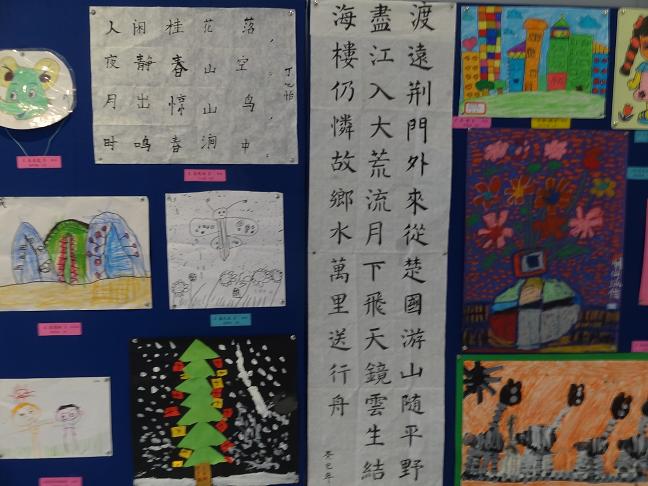 人闲桂花落，
夜静春山空。
月出惊山鸟，
时鸣春涧中。
渡遠荆門外來從楚國游山隨平野
盡江入大荒流月下飛天鏡雲生結
海樓仍憐故鄉水萬里送行舟
癸巳年